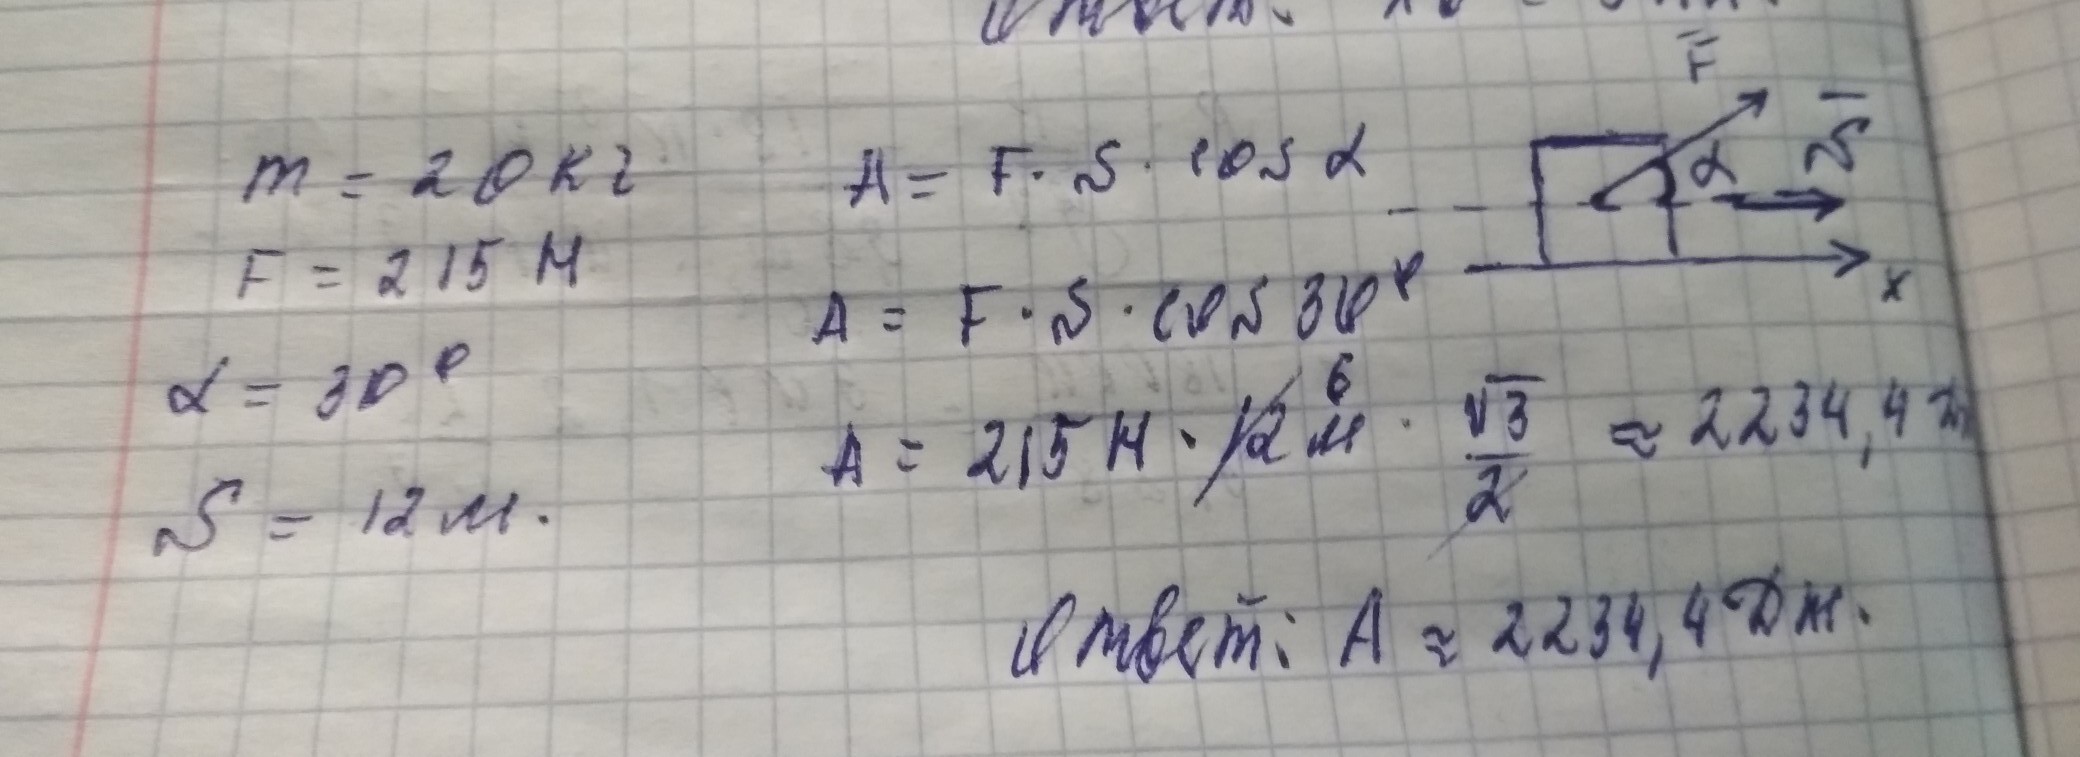 Ответ:
m = 20 кг
F = 215 Н
α = 30°
S = 12 м.
A = F · S · cos α
A = F · S · cos 30°
A = 215 Н · 12 м 6 · √3/2 ≈ 2234,4 Дж
Ответ: A ≈ 2234,4 Дж.
F
α
S
x